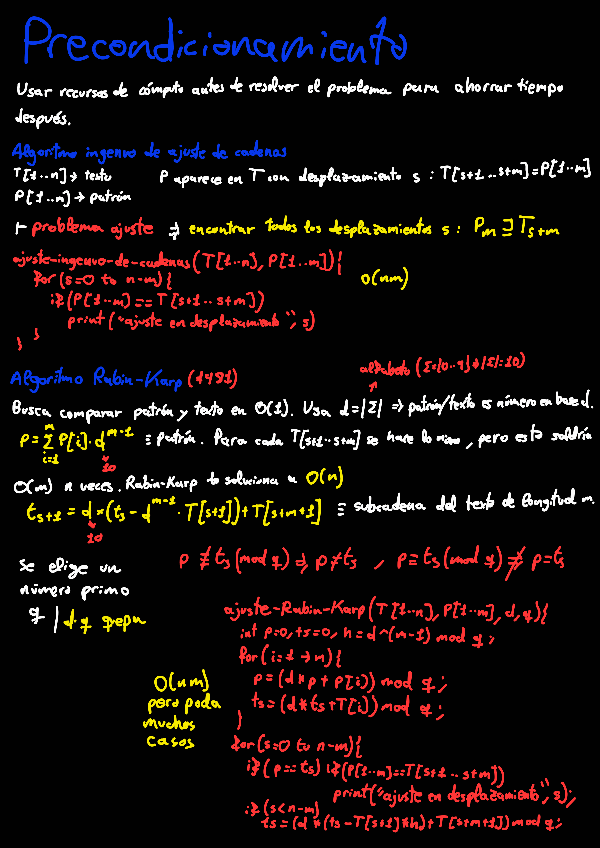 Precondicionamiento
Usar recursos de cómputo antes de resolver el problema para ahorrar tiempo
después.
Algoritmo ingenuo de ajuste de cadenas
T[1..n] → texto P aparece en T con desplazamiento s : T[s+1..s+m]=P[1..m]
P[1..m] → patrón
problema ajuste ⇒ encontrar todos los desplazamientos s : Pm ⊐ Ts+m
ajuste-ingenuo-de-cadenas(T[1..n], P[1..m]){
for(s=0 to n-m){ O(nm)
if(P[1..m] == T[s+1..s+m])
print("ajuste en desplazamiento", s)
}
}
alfabeto (Σ={0..9}→|Σ|=10)
Algoritmo Rabin-Karp (1981)
Busca comparar patrón y texto en O(1). Usa d=|Σ| ⇒ patrón/texto es número en base d.
P = Σ P[i]·d^m-1 ≡ patrón. Para cada T[s+1..s+m] se hace lo mismo, pero esto saldría
i=1 m
10
O(m) n veces. Rabin-Karp lo soluciona a O(n)
ts+1 = d*(ts - d^m-1 · T[s+1]) + T[s+m+1] ≡ subcadena del texto de longitud m.
10
Se elige un
número primo
q | dq
p ≢ ts (mod q) ⇒ p ≠ ts , p ≡ ts (mod q) ⇏ p = ts
ajuste-Rabin-Karp(T[1..n], P[1..m], d, q){
int p=0, ts=0, h=d^(m-1) mod q;
for(i=1 → m){
p=(d*p + P[i]) mod q;
ts=(d*ts+T[i]) mod q;
}
O(nm)
pero poda
muchos
casos
for(s=0 to n-m){
if(p==ts) if(P[1..m]==T[s+1..s+m])
print("ajuste en desplazamiento", s);
if(s<n-m)
ts=(d*(ts-T[s+1]*h)+T[s+m+1]) mod q;